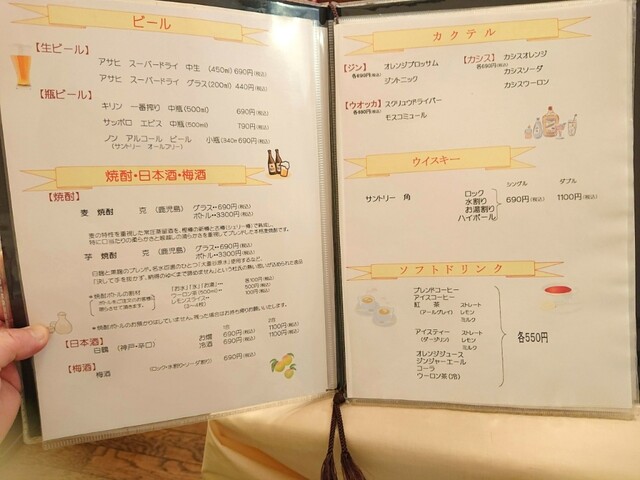 ビール
【生ビール】
アサヒ スーパードライ 中生 (450ml) 690円(税込)
アサヒ スーパードライ グラス(200ml) 440円(税込)
【瓶ビール】
キリン 一番搾り 中瓶(500ml) 690円(税込)
サッポロ エビス 中瓶(500ml) 790円(税込)
ノン アルコール ビール 小瓶(340ml) 690円(税込)
(サントリー オールフリー)
焼酎・日本酒・梅酒
【焼酎】
麦 焼酎 克(鹿児島) グラス・・690円(税込)
ボトル・・3300円(税込)
芋 焼酎 克(鹿児島) グラス・・690円(税込)
ボトル・・3300円(税込)
*焼酎ボトルの割材
【お水】【氷】【お湯】・・・各100円(税込)
ウーロン茶(500ml)・・・500円(税込)
レモンスライス・・・100円(税込)
【日本酒】
1合 2合
白鶴 (神戸・辛口) お燗 690円(税込) 1100円(税込)
冷酒 690円(税込) 1100円(税込)
【梅酒】
梅酒 (ロック・水割り・ソーダ割り) 690円(税込)
カクテル
【ジン】 オレンジブロッサム
各690円(税込)
ジントニック
【カシス】 カシスオレンジ
各690円(税込)
カシスソーダ
カシスウーロン
【ウオッカ】 スクリュウドライバー
各690円(税込)
モスコミュール
ウイスキー
シングル ダブル
サントリー 角 ロック
水割り 690円(税込) 1100円(税込)
お湯割り
ハイボール
ソフトドリンク
ブレンドコーヒー
アイスコーヒー
紅 茶 ストレート
(アールグレイ) レモン
ミルク
アイスティー ストレート
(ダージリン) レモン
ミルク
各550円
オレンジジュース
ジンジャーエール
コーラ
ウーロン茶(冷)